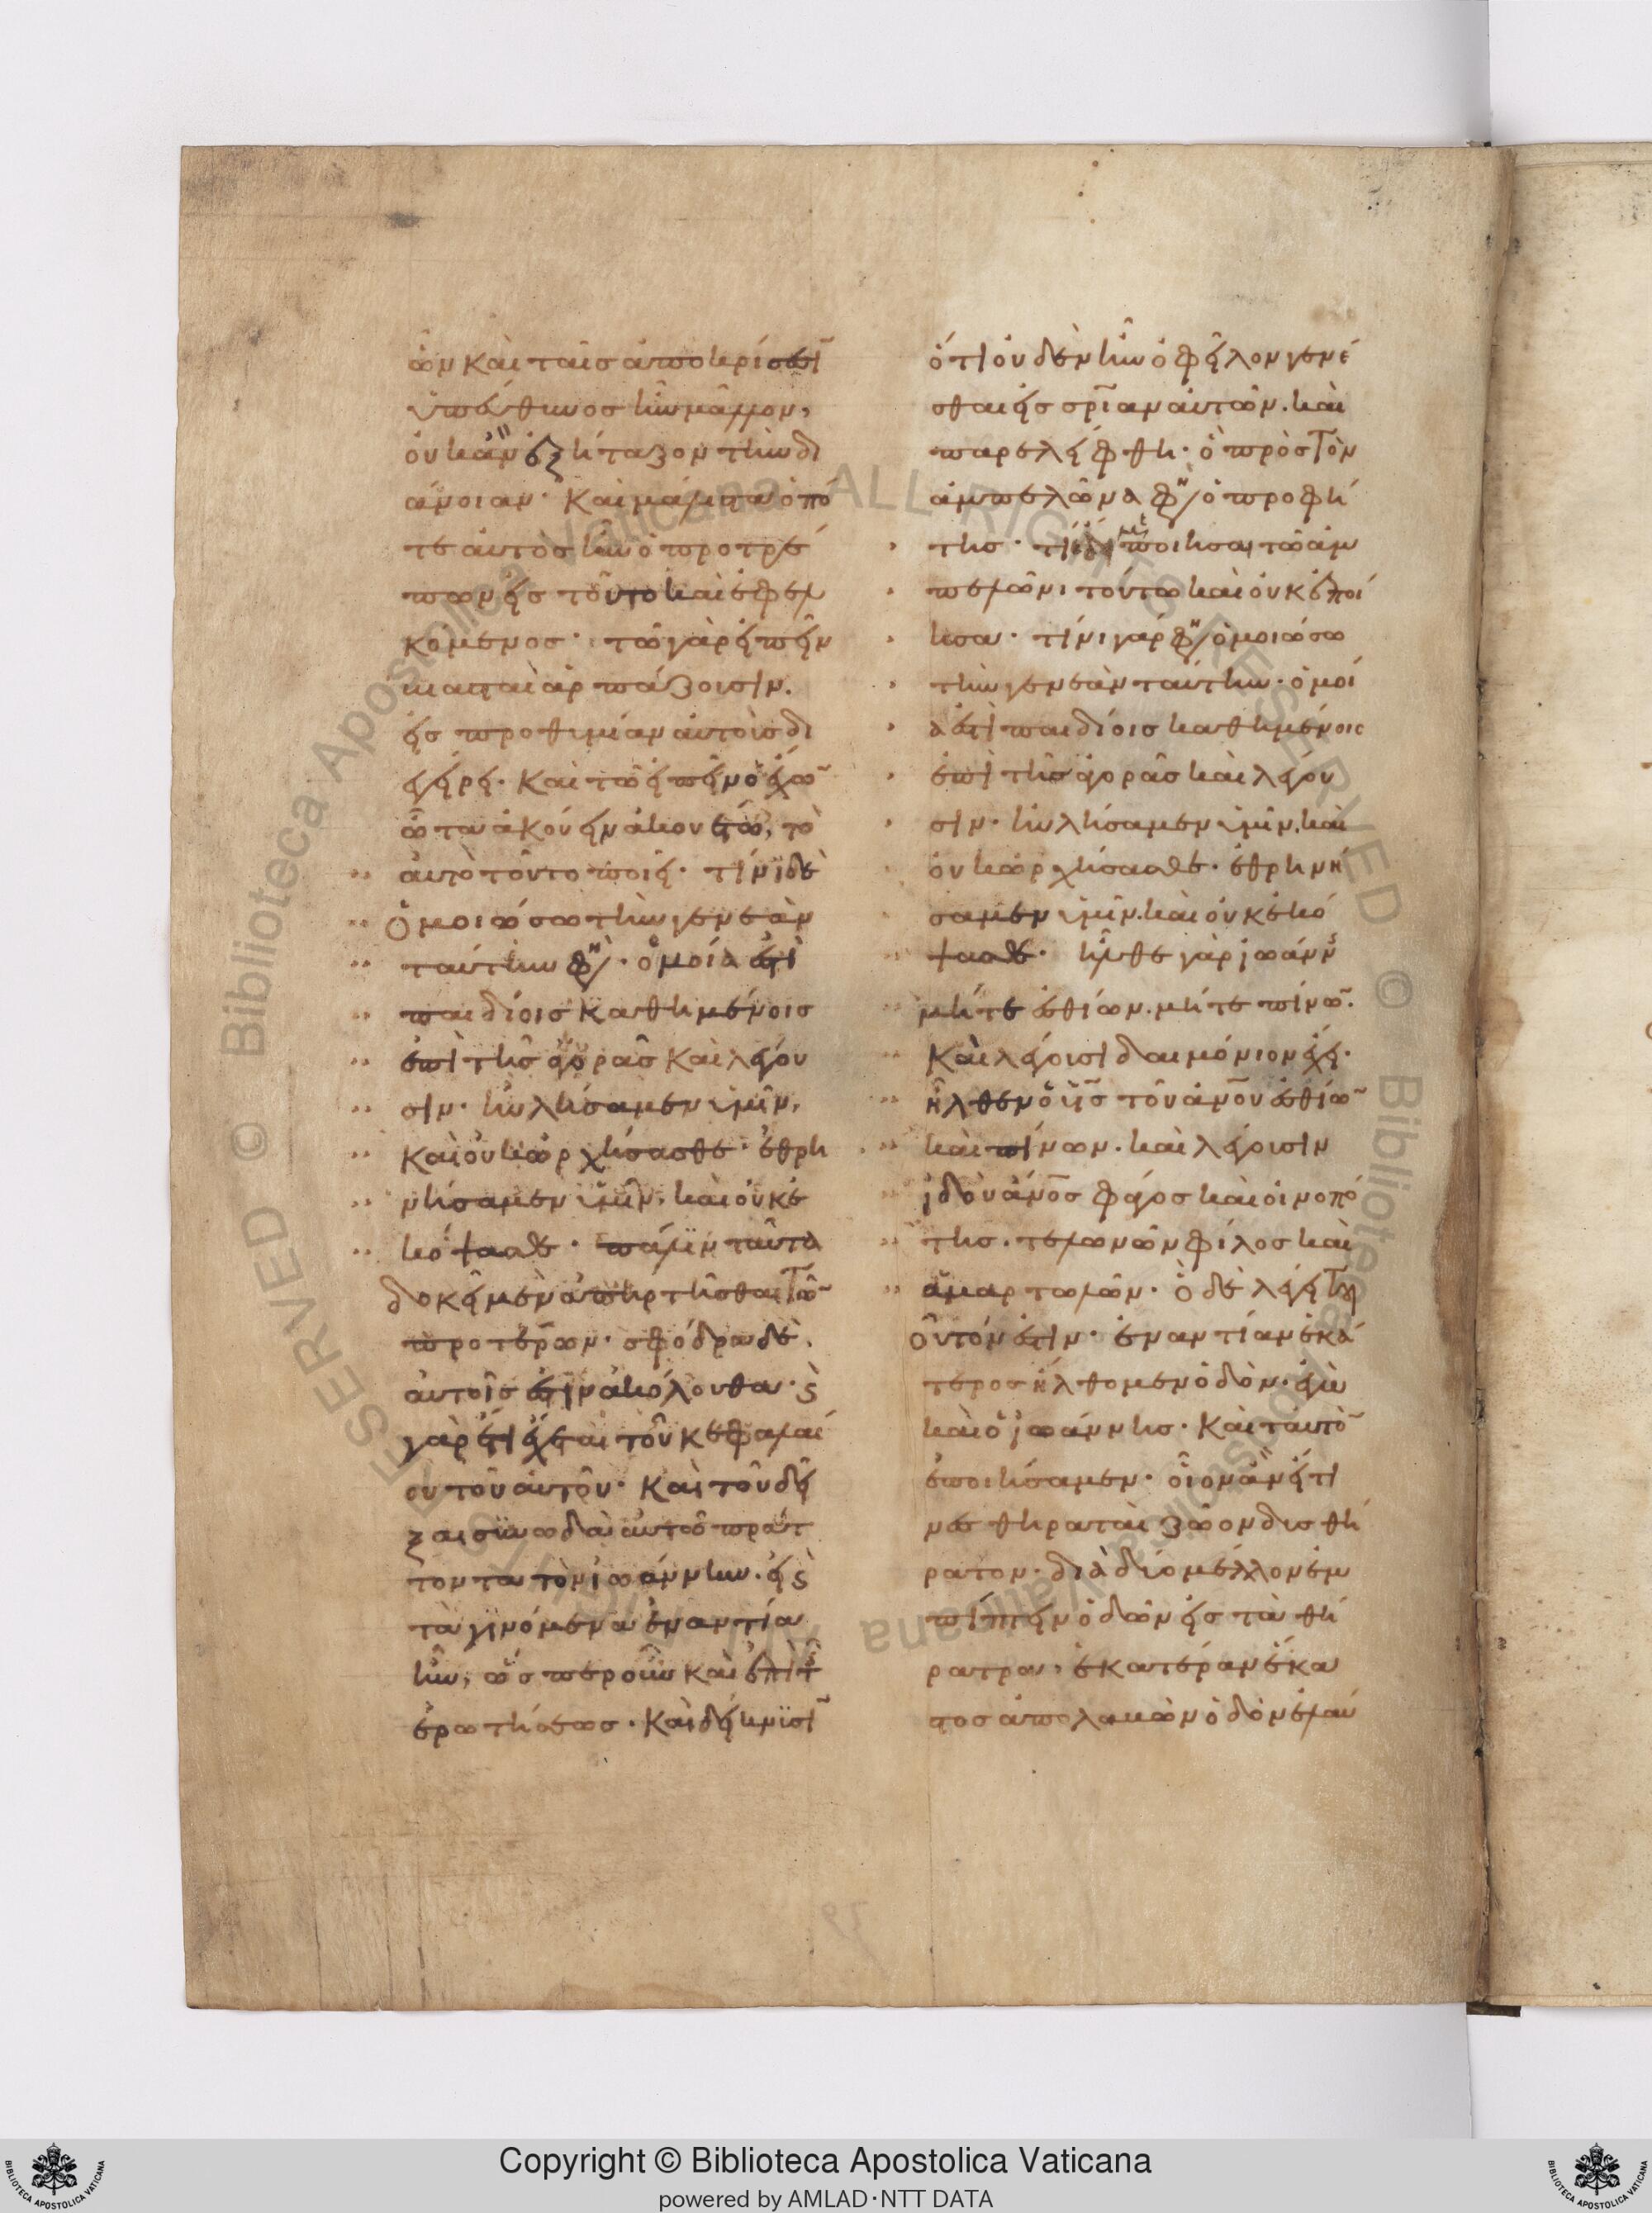 ὧν καὶ ταῖς ἀποκρίσεσι̅
ὑπεύθυνος ἦν μᾶλλον,
οὐκ ἂν ἐξήταζον τὴν δι
άνοιαν· Καὶ μάλιστα ὁπό
τε αὐτὸς ἦν ὁ προτρέ
πων εἰς τοῦτο καὶ ἐφελ
κόμενος· τῶ γὰρ εἰπεῖν
βιασταὶ ἁρπάζουσιν.
εἰς προθυμίαν αὐτοὺς δι
εγείρει· Καὶ τῶ εἰπεῖν ὁ ἔχω̅
ὦτα ἀκούειν ἀκουέτω, τὸ
αὐτὸ τοῦτο ποιεῖ· τίνι δὲ
ὁμοιώσω τὴν γενεὰν
ταύτην φη· ὁμοία ἐστὶ
παιδίοις καθημένοις
ἐπὶ τῆς ἀγορᾶς καὶ λέγου
σιν· ηὐλήσαμεν ὑμῖν,
καὶ οὐκ ὠρχήσασθε· ἐθρη
νήσαμεν ὑμῖν, καὶ οὐκ ἐ
κόψασθε· πάλιν ταῦτα
δοκεῖ μὲν ἀπηρτῆσθαι τῶ̅
προτέρων· σφόδρα δὲ
αὐτοῖς ἐστὶν ἀκόλουθα· ϛ
γὰρ ἔτι ἔχεται τοῦ κεφαλαί
ου τοῦ αὐτοῦ· Καὶ τοῦ δεῖ
ξαι σύνωδα αὐτῶ πράτ
τοντα τὸν ἰωάννην. εἰ ϛ
τὰ γινόμενα ἐναντία
ἦν, ὥσπερ οὖν καὶ ἐπὶ τῆς
ἐρωτήσεως· Καὶ δείκνυσι̅
ὅτι οὐδὲν ἦν ὃ ὤφειλον γενέ
σθαι εἰς σρ̅ιαν αὐτῶν. καὶ
παρελείφθη· ὃ πρὸς τὸν
ἀμπελῶνα φη ὁ προφή
της· τί με ποιῆσαι τῶ ἀμ
πελῶνι τούτω καὶ οὐκ ἐποί
ησα· τίνι γάρ φη ὁμοιώσω
τὴν γενεὰν ταύτην· ὁμοί
α ἐστὶ παιδίοις καθημένοις
ἐπὶ τῆς ἀγορᾶς καὶ λέγου
σιν· ηὐλήσαμεν ὑμῖν. καὶ
οὐκ ὠρχήσασθε· ἐθρηνή
σαμεν ὑμῖν. καὶ οὐκ ἐκό
ψασθε· ἦλθε γὰρ ἰωάνν
μήτε ἐσθίων. μήτε πίνω̅.
Καὶ λέγουσι δαιμόνιον ἔχει·
ἦλθεν ὁ υἱ̅ς τοῦ ἀν̅ου ἐσθίω̅
καὶ πίνων. καὶ λέγουσιν
ἰδοὺ ἄν̅ος φάγος καὶ οἰνοπό
της. τελωνῶν φίλος καὶ
ἁμαρτωλῶν· ὃ δὲ λέγει τοι
οῦτόν ἐστιν· ἐναντίαν ἑκά
τερος ἤλθομεν ὁδὸν. ἐγὼ
καὶ ὁ ἰωάννης. Καὶ ταυτὸ̅
ἐποιήσαμεν· οἷον ἂν εἴ τι
νες θηραταὶ ζῶον δυσθή
ρατον. διὰ δύο μέλλον ἐμ
πίπτειν ὁδῶν εἰς τὰ θή
ρατρα, ἑκατέραν ἕκα
στος ἀπολαβὼν ὁδὸν ἐλαύ